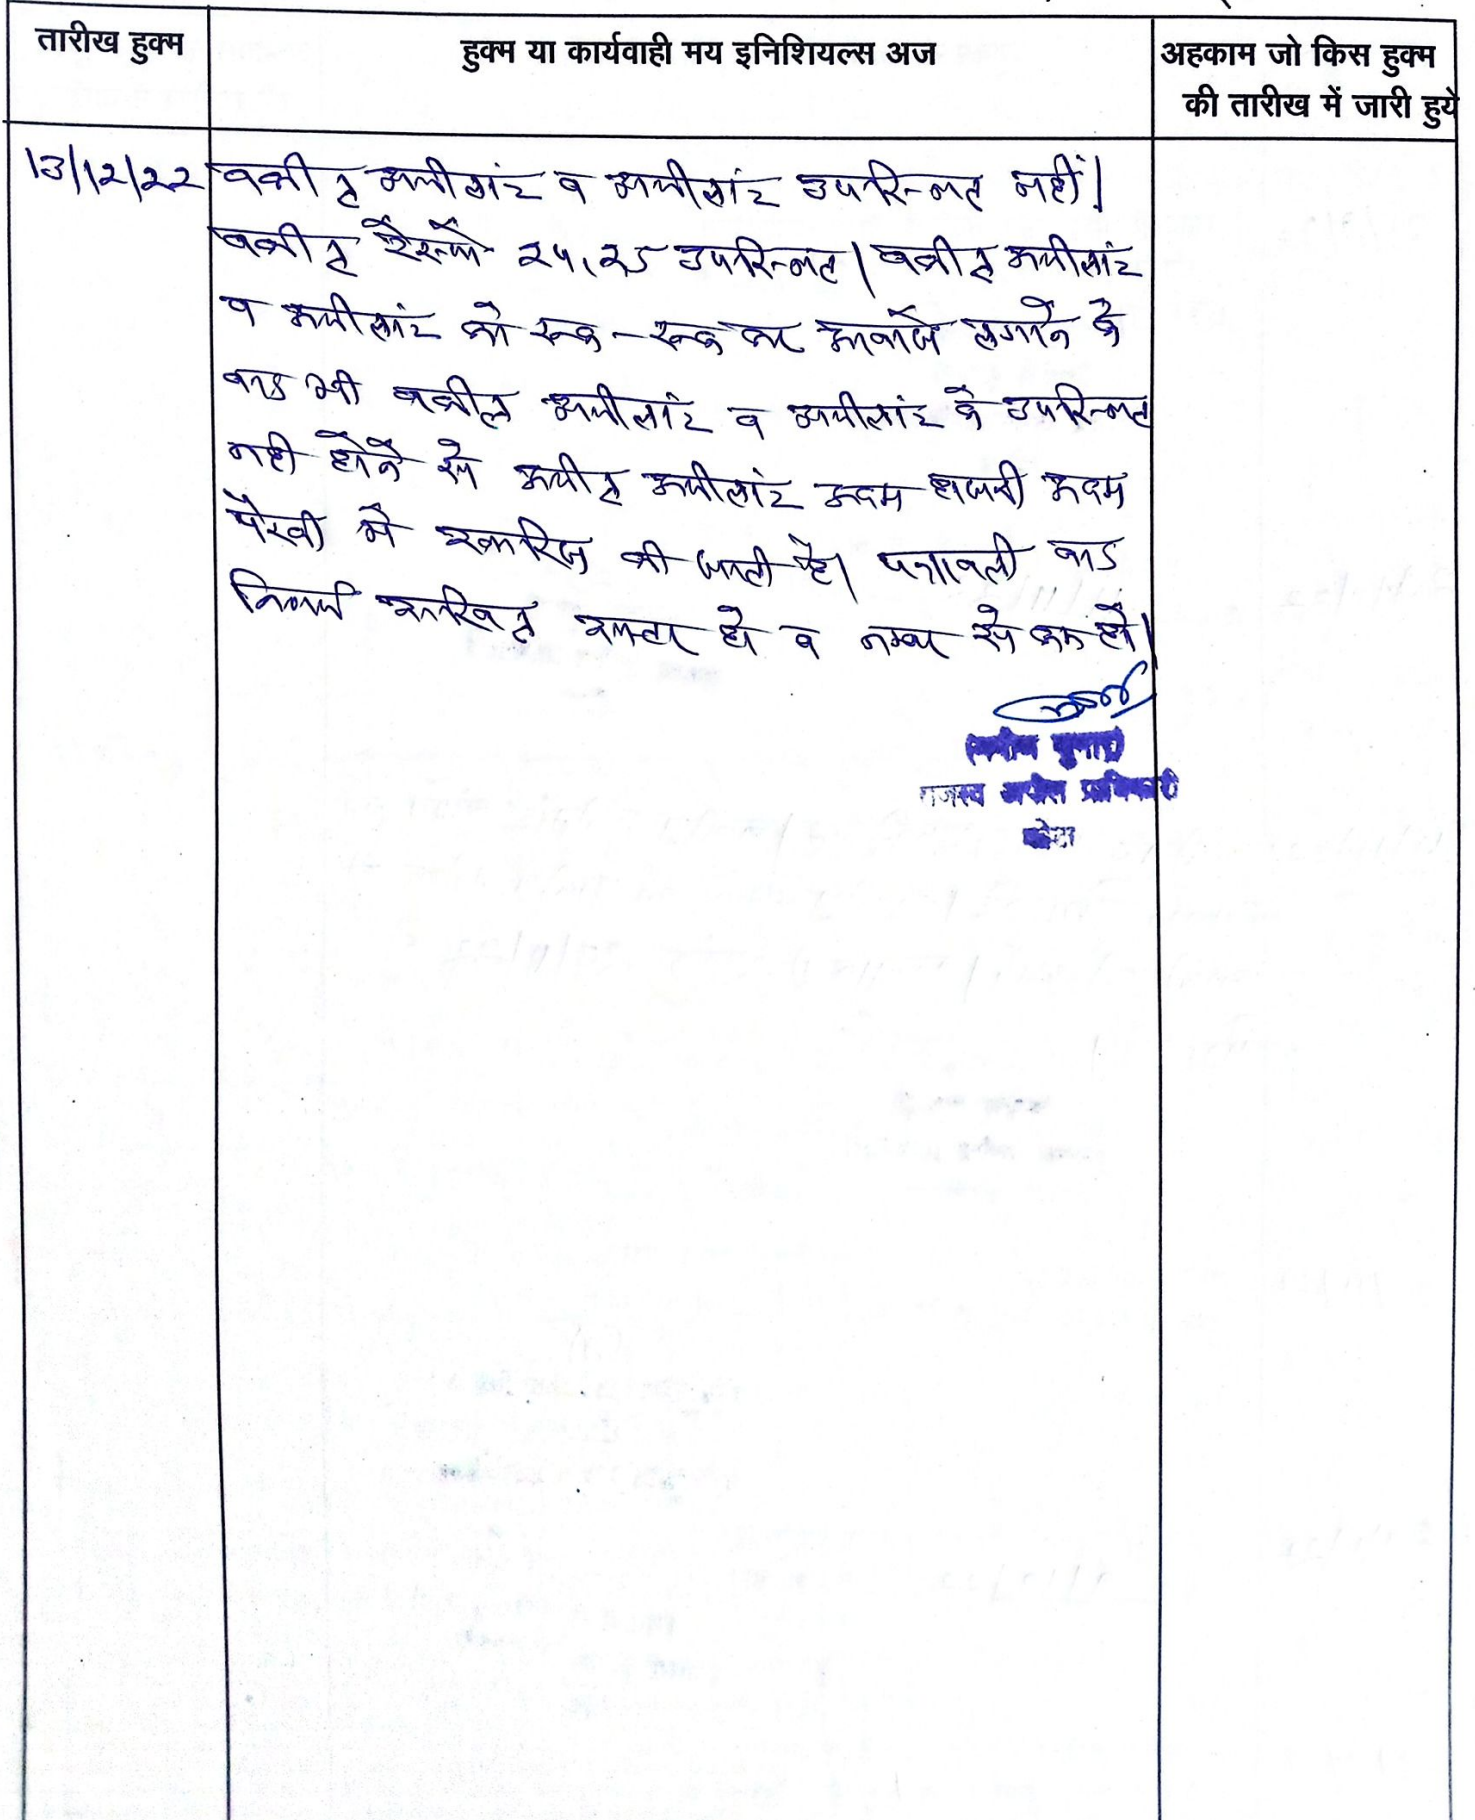 तारीख हुक्म
हुक्म या कार्यवाही मय इनिशियल्स अज
अहकाम जो किस हुक्म
की तारीख में जारी हुये
13/12/22
वकील अपीलांट व अपीलांट उपस्थित नहीं।
वकील रेस्पो 24,25 उपस्थित। वकील अपीलांट
व अपीलांट को रूक-रूक कर आवाजें लगाने के
बाद भी वकील अपीलांट व अपीलांट के उपस्थित
नही होने से अपील अपीलांट अदम हाजरी अदम
पैरवी में खारिज की जाती है। पत्रावली बाद
निर्णय दाखिल दफ्तर हो व नम्बर से कम हो।
कुमार)
राजस्व अपील प्राधिकारी
कोटा